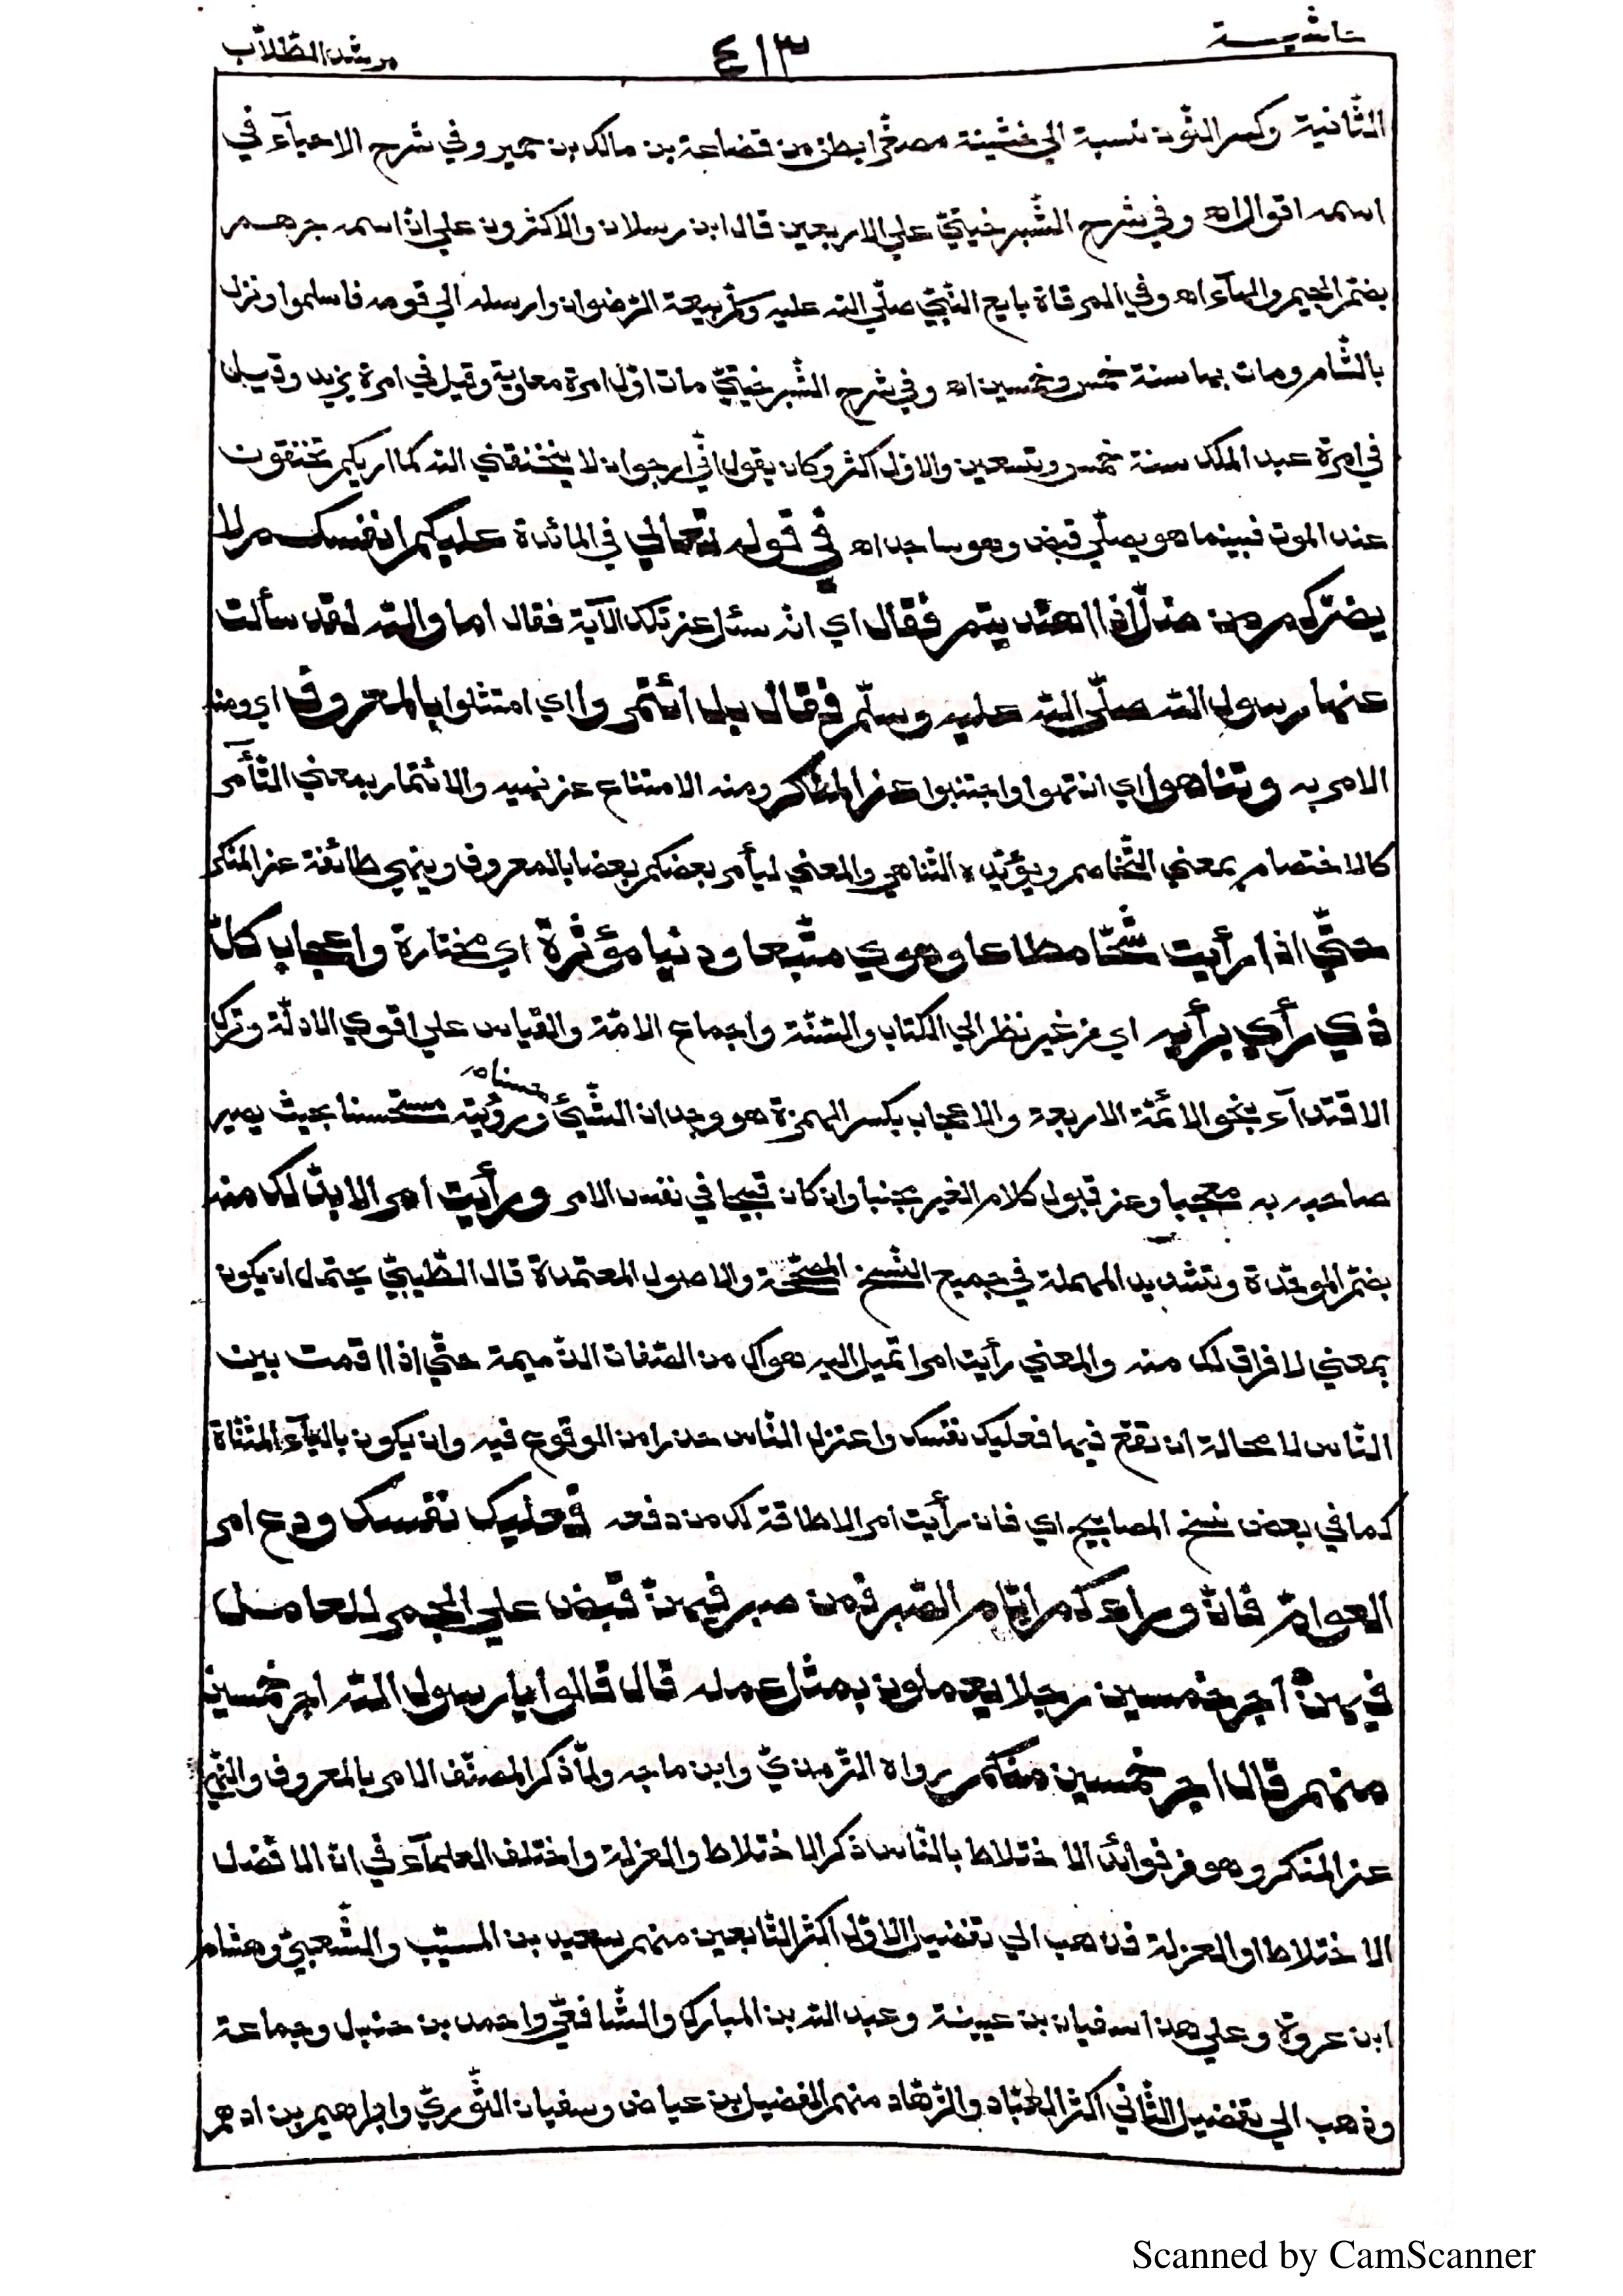 حاشية ٤١٣ مرشد الطلاب
الثانية وكسر النون نسبة الي خشينة مصغرا بطن من قضاعة بن مالك بن حمير وفي شرح الاحيآء في
اسمه اقوال اه وفي شرح الشبرخيتيّ علي الاربعين قال ابن رسلان والاكثرون علي انّ اسمه جرهم
بضمّ الجيم والهآء اه وفي المرقاة بايع النّبيّ صلّي الله عليه وسلّم بيعة الرّضوان وارسله الي قومه فاسلموا ونزل
بالشّام ومات بها سنة خمس وخمسين اه وفي شرح الشّبرخيتيّ مات اوّل امرة معاوية وقيل في امرة يزيد وقيل
في امرة عبد الملك سنة خمس وتسعين والاوّل اكثر وكان يقول انّي ارجو ان لا يخنقني الله كما اريكم تخنقون
عند الموت فبينما هو يصلّي قبض وهو ساجد اه في قوله تعالي في المائدة عليكم انفسكم لا
يضرّكم من ضلّ اذا اهتديتم فقال اي انه سئل عن تلك الآية فقال اما والله لقد سألت
عنها رسول الله صلّي الله عليه وسلّم فقال بل ائتمروا اي امتثلوا بالمعروف اي ومنه
الامر به وتناهوا اي انتهوا واجتنبوا عن المنكر ومنه الامتناع عن نهيه والائتمار بمعني التّأمر
كالاختصام بمعني التّخاصم ويؤيّده التّناهي والمعني ليأمر بعضكم بعضا بالمعروف وينهي طائفة عن المنكر
حتّي اذا رأيت شحّا مطاعا وهوي متّبعا ودنيا مؤثرة اي مختارة واعجاب كلّ
ذي رأي برأيه اي من غير نظر الي الكتاب والسّنّة واجماع الامّة والقياس علي اقوي الادلّة وترك
الاقتدآء بنحو الائمّة الاربعة والاعجاب بكسر الهمزة هو وجدان الشّيئ حسنا م ورؤيته مستحسنا بحيث يصير
صاحبه به معجبا وعن قبول كلام الغير مجنبا وان كان قبيحا في نفس الامر ورأيت امرا لا بدّ لك منه
بضمّ الموحّدة وتشديد المهملة في جميع النّسخ المصحّحة والاصول المعتمدة قال الطّيبيّ يحتمل ان يكون
بمعني لا فراق لك منه والمعني رأيت امرا تميل اليه هواك من الصّفات الذّميمة حتّي اذا اقمت بين
النّاس لا محالة ان تقع فيها فعليك نفسك واعتزل النّاس حذرا من الوقوع فيه وان يكون باليآء المثنّاة
كما في بعض نسخ المصابيح اي فان رأيت امرا لا طاقة لك من دفعه فعليك نفسك ودع امر
العوامّ فانّ وراءكم ايّام الصّبر فمن صبر فيهنّ قبض علي الجمر للعامل
فيهنّ اجر خمسين رجلا يعملون بمثل عمله قال قالوا يا رسول الله اجر خمسين
منهم قال اجر خمسين منكم رواه التّرمذيّ وابن ماجه ولمّا ذكر المصنّف الامر بالمعروف والنّهي
عن المنكر وهو من فوائد الاختلاط بالنّاس ذكر الاختلاط والعزلة واختلف العلمآء في انّ الافضل
الاختلاط او العزلة فذهب الي تفضيل الاوّل اكثر التّابعين منهم سعيد بن المسيّب والشّعبيّ وهشام
ابن عروة وعلي هذا سفيان بن عيينة وعبد الله بن المبارك والشّافعيّ واحمد بن حنبل وجماعة
وذهب الي تفضيل الثّاني اكثر العبّاد والزّهّاد منهم الفضيل بن عياض وسفيان الثّوريّ وابراهيم بن ادهم
Scanned by CamScanner